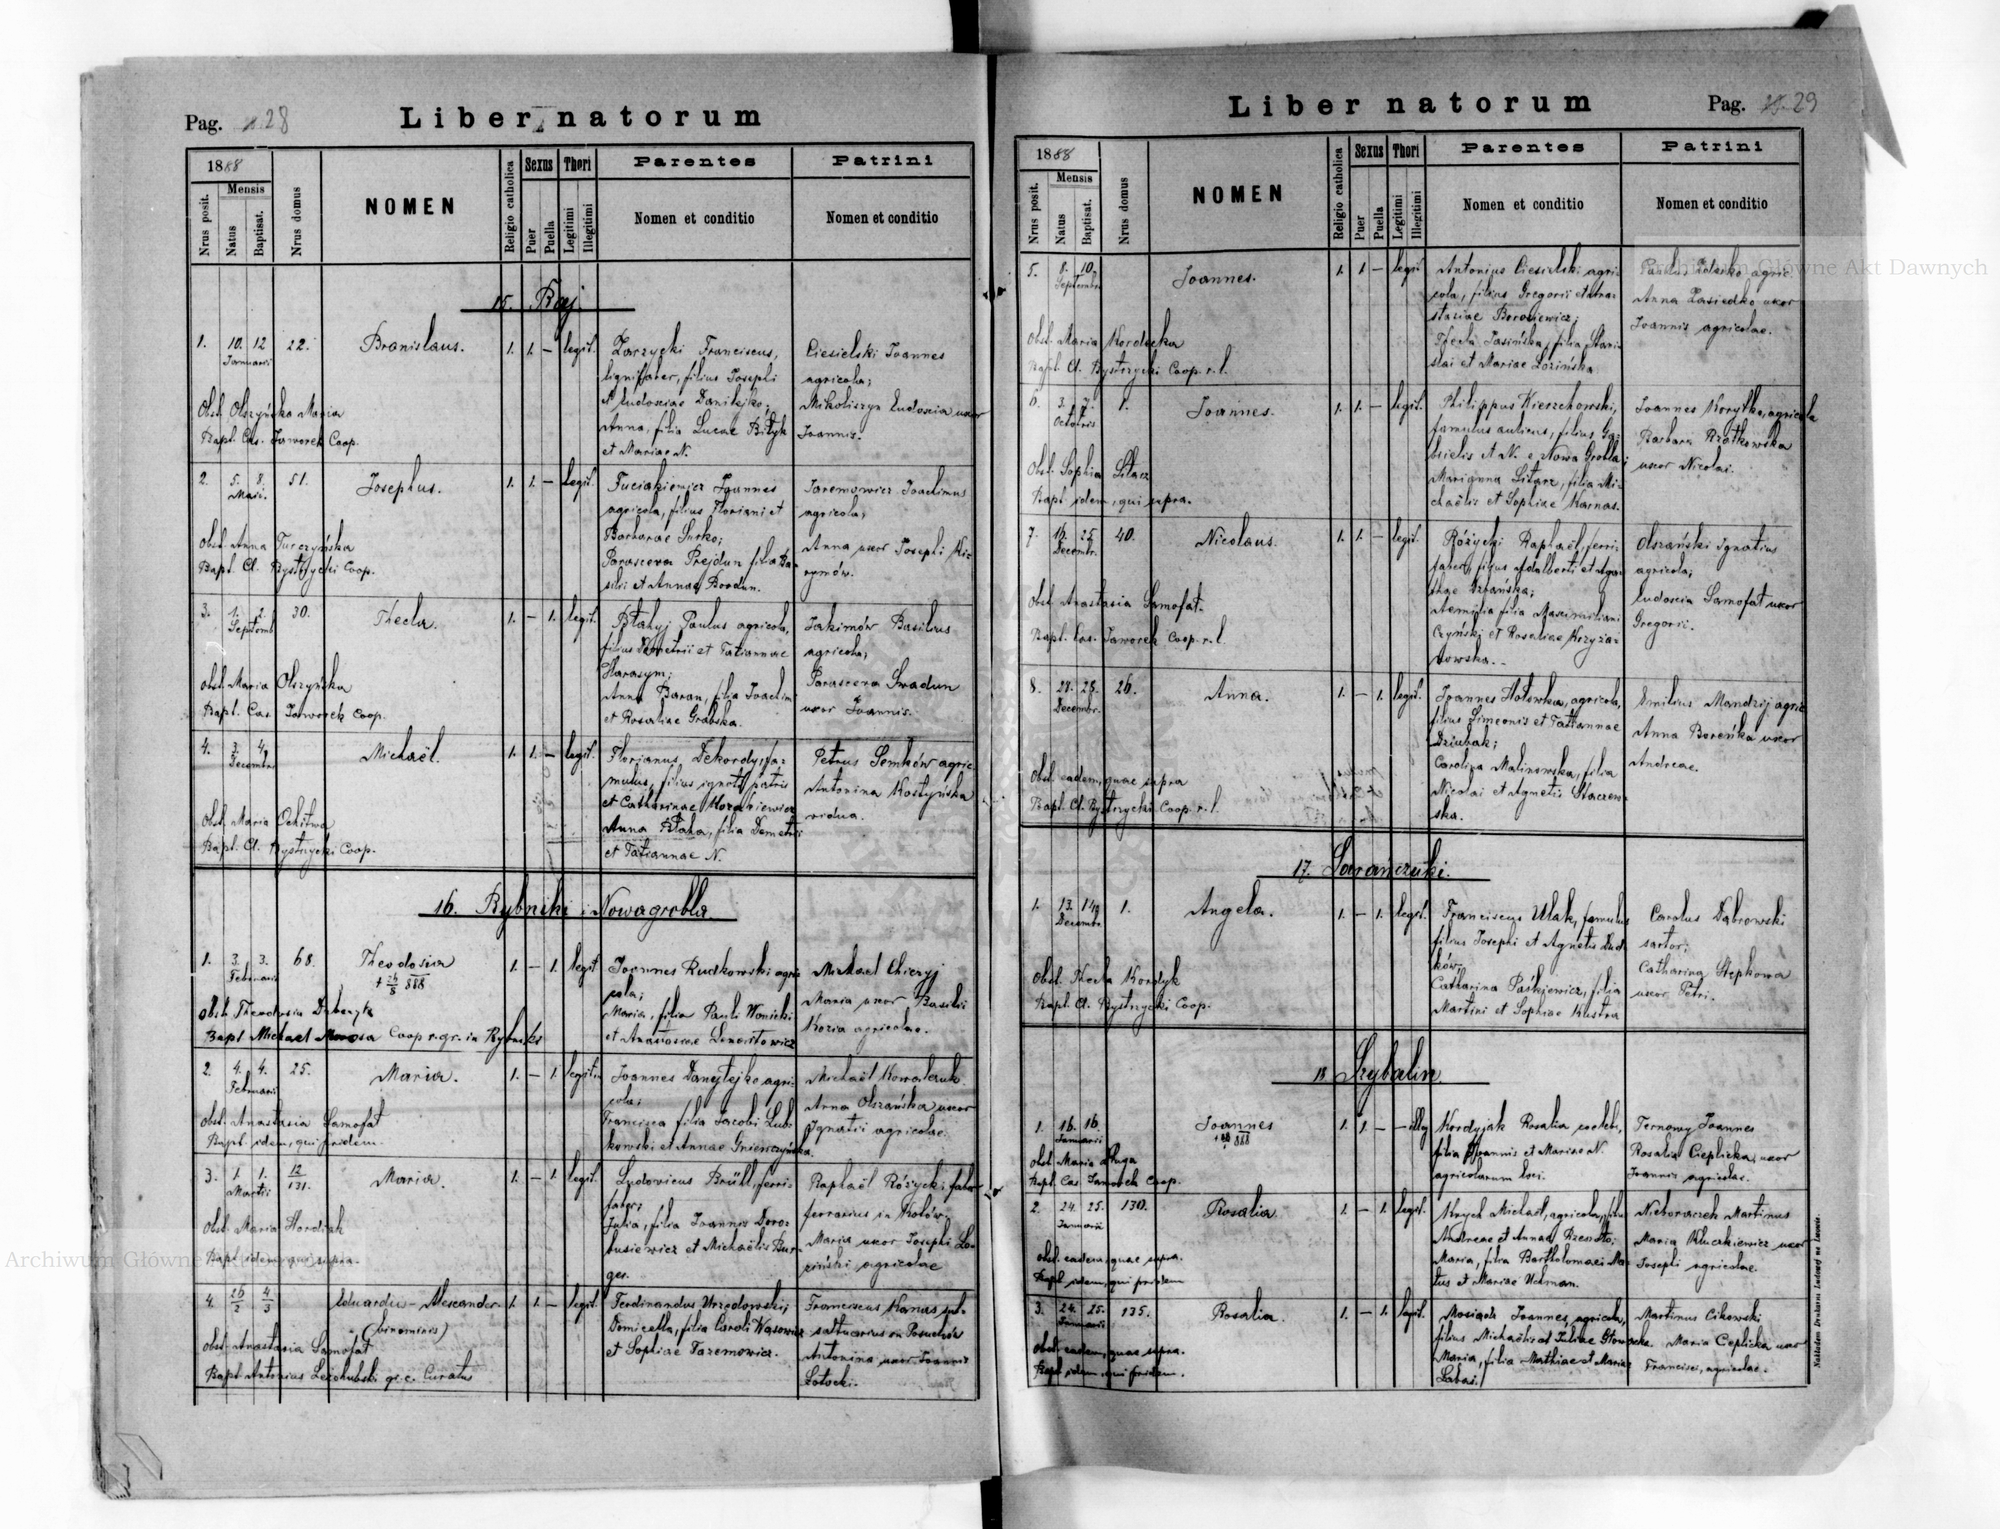 Pag. 28
Liber natorum
1888
Nrus posit.
Mensis
Natus
Baptisat.
Nrus domus
NOMEN
Religio catholica
Sexus
Puer
Puella
Thori
Legitimi
Illegitimi
Parentes
Nomen et conditio
Patrini
Nomen et conditio
15. Raj.
1. 10. 12 22. Bronislaus. 1. 1. – legit. Zarzycki Franciscus, Ciesielski Joannes
Januarii
lignifaber, filius Josephi agricola;
et Eudosciae Danilejko; Mikoliszyn Eudoscia uxor
Obst. Olszyńska Maria Anna, filia Lucae Biłyk Joannis.
Bapt. Cas. Jaworek Coop. et Mariae N.
2. 5. 8. 51. Josephus. 1. 1. – legit. Joannes Jaremowicz Joachimus
Maii.
agricola, filius Floriani et agricola;
Obst. Anna Turczyńska Barbarae Surko; Anna uxor Josephi
Bapt. Cl. Bystrzycki Coop. Parasceva Prejdun filia
et Annae Bordun.
3. 1. 2. 30. Thecla. 1. – 1. legit. Błahyj Paulus agricola, Jakimów Basilius
Septemb.
filius Demetrii et Tatiannae agricola;
Harasym; Parasceva Swadun
Obst. Maria Olszyńska Anna Baran, filia Joachimi uxor Joannis.
Bapt. Cas. Jaworek Coop. et Rosaliae Grabska.
4. 3. 4. Michaël. 1. 1. – legit. Florianus Dekordy, fa- Petrus Semków agric.
Decembr.
mulus, filius ignoti patris Antonina Kostyńska
et Catharinae vidua.
Obst. Maria Ochitwa Anna Błaha, filia Demetri
Bapt. Cl. Bystrzycki Coop. et Tatiannae N.
16. Rybniki i Nowagrobla
1. 3. 3. 68. Theodosia 1. – 1. legit Joannes Rudkowski agri- Michael Chiczyj
Februarii
cola; Maria uxor Basilii
Maria, filia Pauli Wonicki Kozia agricolae.
Bapt. Michael Morosa Coop r. gr. in Rybniki et Anastasiae
2. 4. 4. 25. Maria. 1. – 1. legitim Joannes Danylejko agri- Michaël Kowalczuk
Februarii
cola; Anna Olszańska uxor
Obst. Anastasia Samofat Francisca filia Jacobi Lub- Ignatii agricolae.
Bapt. idem, qui pridem. kowski et Annae Gnienczyńska.
3. 1. 1. 12/131. Maria. 1. – 1. legit. Ludovicus Brühl, ferri- Raphaël Różycki, faber
Martii
faber; ferrarius in
Obst. Maria Hordiak Julia, filia Joannis Doro- Maria uxor Josephi Lo-
Bapt. idem, qui supra. busiewicz et Michaëlis Bur- ziński agricolae
ger.
4. 26/2 4/3 Eduardus – Alexander 1. 1. – legit. Ferdinandus Urzędowski; Franciscus Kanas,
(binominis) Domicella, filia Caroli Wąsowicz saltuarius in
Obst. Anastasia Samofat et Sophiae Jaremowicz. Antonina uxor Joannis
Bapt. Antonius gr. c. Curatus Łotocki.
Pag. 29
Liber natorum
1888
Nrus posit.
Mensis
Natus
Baptisat.
Nrus domus
NOMEN
Religio catholica
Sexus
Puer
Puella
Thori
Legitimi
Illegitimi
Parentes
Nomen et conditio
Patrini
Nomen et conditio
5. 8. 10. Joannes. 1. 1. – legit Antonius Ciesielski agri- agric.
Septembr.
cola, filius Gregorii et Ana- Anna Zasiedko uxor
stasiae Borosiewicz; Joannis agricolae.
Obst. Maria Kordecka Thecla Jasińska, filia Stani-
Bapt. Cl. Bystrzycki Coop. r. l. slai et Mariae Łozińska
6. 3. 7. 1. Joannes. 1. 1. – legit. Philippus Kierzchowski, Joannes Korytko, agricola
Octobris
famulus aulicus, filius Ga- Barbara Bratkowska
brielis et N. e Nowa Grobla; uxor Nicolai.
Obst. Sophia Sitacz Marianna Sitarz, filia Mi-
Bapt. idem, qui supra. chaëlis et Sophiae Karnas.
7. 16. 25. 40. Nicolaus. 1. 1. – legit. Różycki Raphaël, ferri- Olszański Ignatius
Decembr.
faber, filius Adalberti et Aga- agricola;
thae Eudoscia Samofat uxor
Obst. Anastasia Samofat. Aemilia filia Maximiliani Gregorii.
Bapt. Cas. Jaworek Coop. r. l. Czyński et Rosaliae Krzyża-
nowska.
8. 27. 28. 26. Anna. 1. – 1. legit. Joannes Hołowka, agricola, Emilius Mandzij agric.
Decembr.
filius Simeonis et Tatiannae Anna Boreńka uxor
Dziubak; Andreae.
Obst. eadem, quae supra Carolina Malinowska, filia
Bapt. Cl. Bystrzycki Coop. r. l. Nicolai et Agnetis Staczew-
ska.
17. Sarańczuki.
1. 13. 14. 1. Angela. 1. – 1. legit. Franciscus Ulak, famulus Carolus Dąbrowski
Decembr.
filius Josephi et Agnetis Lud- sartor;
ków; Catharina Stepkowa
Obst. Thecla Kordyk Catharina Paśkiewicz, filia uxor Petri.
Bapt. Cl. Bystrzycki Coop. Martini et Sophiae Kustra
18 Szybalin
1. 16. 16. Joannes 1. 1. – – illeg Kordyjak Rosalia coelebs, Ternowy Joannes
Januarii
filia Joannis et Mariae N. Rosalia Cieplicka, uxor
Obst. Maria Długa agricolarum loci. Joannis agricolae.
Bapt. Cas Jaworek Coop.
2. 24. 25. 130. Rosalia 1. – 1. legit. Krych Michaël, agricola, filius Nieboraczek Martinus
Januarii
Andreae et Annae Maria Kluczkiewicz uxor
Obst. eadem, quae supra. Maria, filia Bartholomaei Ma- Josephi agricolae.
Bapt. idem, qui pridem tus et Mariae Uchman.
3. 24. 25. 135. Rosalia. 1. – 1. legit. Mosiądz Joannes, agricola, Martinus Cikowski
Januarii
filius Michaëlis et Juliae Głowacka. Maria Ceplicka uxor
Obst. eadem, quae supra. Maria, filia Mathiae et Mariae Francisci, agricolae.
Bapt. idem, qui pridem. Łabaj.
Nakładem Drukarni Ludowej we Lwowie.
Archiwum Główne Akt Dawnych
Archiwum Główne Akt Dawnych